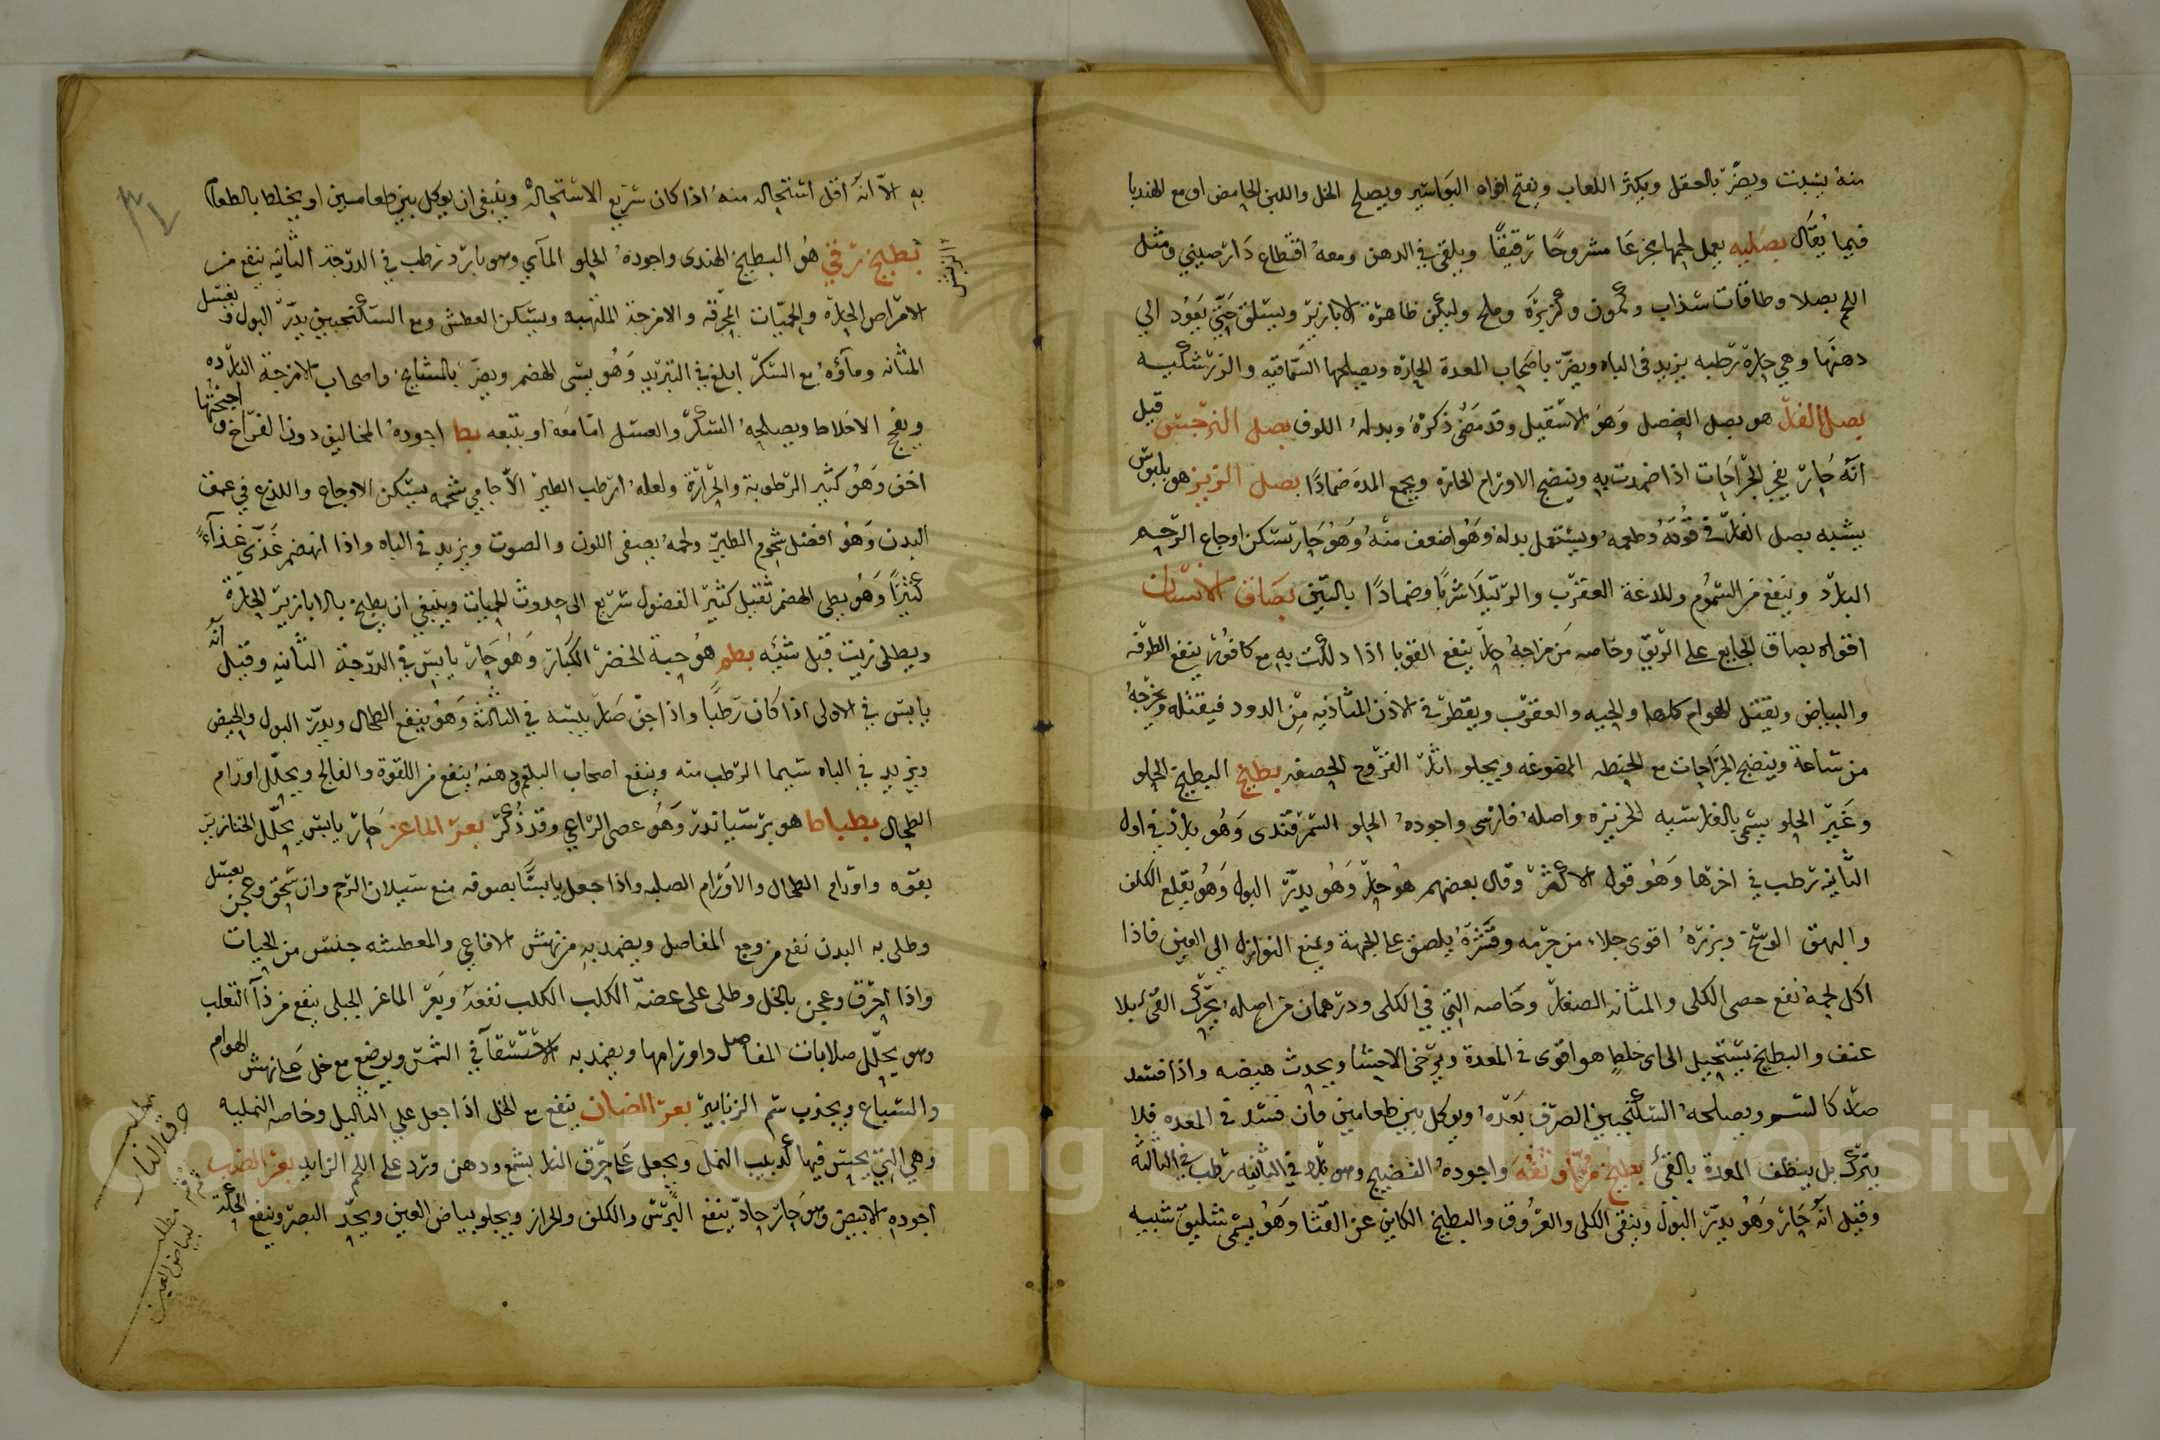 منه يسبت ويضر بالعقل ويكثر اللعاب ويفتح افواه البواسير ويصلح الخل واللبن الحامض او مع الهندبا
فيما يقال بصليه يعمل لحمها مجزعا مشروحا رقيقا ويلقى في الدهن ومعه اقطاع دارصيني ومثل
اللحم بصلا وطاقات سذاب وكمون وكزبرة وملح وليكن ظاهرة الابازير ويسلق حتى يعود الى
دهنها وهي حارة رطبه يزيد فى الباه ويضر باصحاب المعدة الحارة ويصلحها السماقيه والزرشكيه
بصل الفار هو بصل العنصل وهو الاسقيل وقد مضى ذكره وبدله اللوف بصل النرجس قيل
انه حار يفجر الجراحات اذا ضمدت به وينضج الاورام الحارة ويجمع المدة ضمادا بصل الزيز هو بلبوس
يشبه بصل الفار في قوته وطعمه ويستعمل بدله وهو اضعف منه وهو حار يسكن اوجاع الرحم
البارد وينفع من السموم وللدغة العقرب والرتيلا شربا وضمادا بالتين بصاق الانسان
اقواه بصاق الجايع على الريق وخاصه من مزاجه حار ينفع القوبا اذا دلكت به مع كافور ينفع الطرفه
والبياض ويقتل الهوام كلها والحيه والعقرب ويقطر في الاذن المتاذيه من الدود فيقتله ويخرجه
من ساعة وينضج الجراحات مع الحنطه الممضوغه ويجلو اثار القروح الحصفه بطيخ البطيخ الحلو
وغير الحلو يسمى بالفارسيه الخربزه واصله فارسي واجوده الحلو السمرقندى وهو بارد في اول
الثانيه رطب في اخرها وهو قول الاكثر وقال بعضهم هو حار وهو يدر البول وهو يقلع الكلف
والبهق الوسخ وبزره اقوى جلاء من جرمه وقشره يلصق على الجبهة ويمنع النوازل الى العين فاذا
اكل لحمه نفع حصى الكلى والمثانه الصغار وخاصه التي في الكلى ودرهمان من اصله يحرك القئ بلا
عنف والبطيخ يستحيل الى اى خلط هو اقوى في المعدة ويرخى الاحشا ويحدث هيضه واذا فسد
صار كالسم ويصلحه السكنجبين الصرف بعده ويوكل بين طعامين فان فسد في المعده فلا
يترك بل ينظف المعدة بالقئ بطيخ واجوده النضيج وهو بارد في الثانيه رطب في الثالثة
وقيل انه حار وهو يدر البول وينقى الكلى والعروق والبطيخ الكاين عن القثا وهو يسمى شبيه
به الا انه اقل استحاله منه اذا كان سريع الاستحاله وينبغي ان يوكل بين طعامين او يخلط بالطعام
بطيخ رقي هو البطيخ الهندى واجوده الحلو المآي وهو بارد رطب في الدرجة الثانيه ينفع من
الامراض الحارة والحميات المحرقه والامزجة الملتهبه ويسكن العطش ومع السكنجبين يدر البول ويغسل
المثانه وماؤه مع السكر ابلغ في التبريد وهو يسى الهضم ويضر بالمشايخ واصحاب الامزجة البارده
ويفج الاخلاط ويصلحه السكر والعسل اما معه او يتبعه بط اجوده المخاليف دون الفراخ واجنحتها
اخف وهو كثير الرطوبة والحرارة ولعله ارطب الطير الآجامي شحمه يسكن الاوجاع واللذع في عمق
البدن وهو افضل شحوم الطير ولحمه يصفى اللون والصوت ويزيد في الباه واذا انهضم غذى غذاء
كثيرا وهو بطى الهضم ثقيل كثير الفضول سريع الى حدوث الحميات وينبغي ان يطبخ بالابازير الحارة
ويطلى زيت قبل شيه بطم هو حبة الخضر الكبار وهو حار يابس في الدرجة الثانيه وقيل انه
يابس في الاولى اذا كان رطبا واذا جف صار يبسه في الثالثة وهو ينفع الطحال ويدر البول والحيض
ويزيد في الباه سيما الرطب منه وينفع اصحاب البلغم ودهنه ينفع من اللقوة والفالج ويحلل اورام
الطحال بطباط هو برسياندر وهو عصى الراعي وقد ذكر بعر الماعز حار يابس يحلل الخنازير
بقوه واورام الطحال والاورام الصلبه واذا جعل يابسا بصوفه منع سيلان الرحم وان سحق وعجن بعسل
وطلى به البدن نفع من وجع المفاصل ويضمد به من نهش الافاعي والمعطشه جنس من الحيات
واذا احرق وعجن بالخل وطلى على عضة الكلب الكلب نفعه وبعر الماعز الجبلى ينفع من داء الثعلب
وهو يحلل صلابات المفاصل واورامها ويضمد به الاستسقا في الشمس ويوضع مع خل على نهش الهوام
والسباع ويجذب سم الزنابير بعر الضان ينفع مع الخل اذا جعل على الثاليل وخاصه النمليه
وهي التي يحس فيها كدبيب النمل ويجعل على حرق النار بشمع ودهن ورد على اللحم الزايد بعر الضب
اجوده الابيض وهو حار حاد ينفع البرش والكلف والحزاز ويجلو بياض العين ويحد البصر وينفع الحكة
مطلب
حرق النار
مطلب
لبياض العين
Copyright © King Saud University